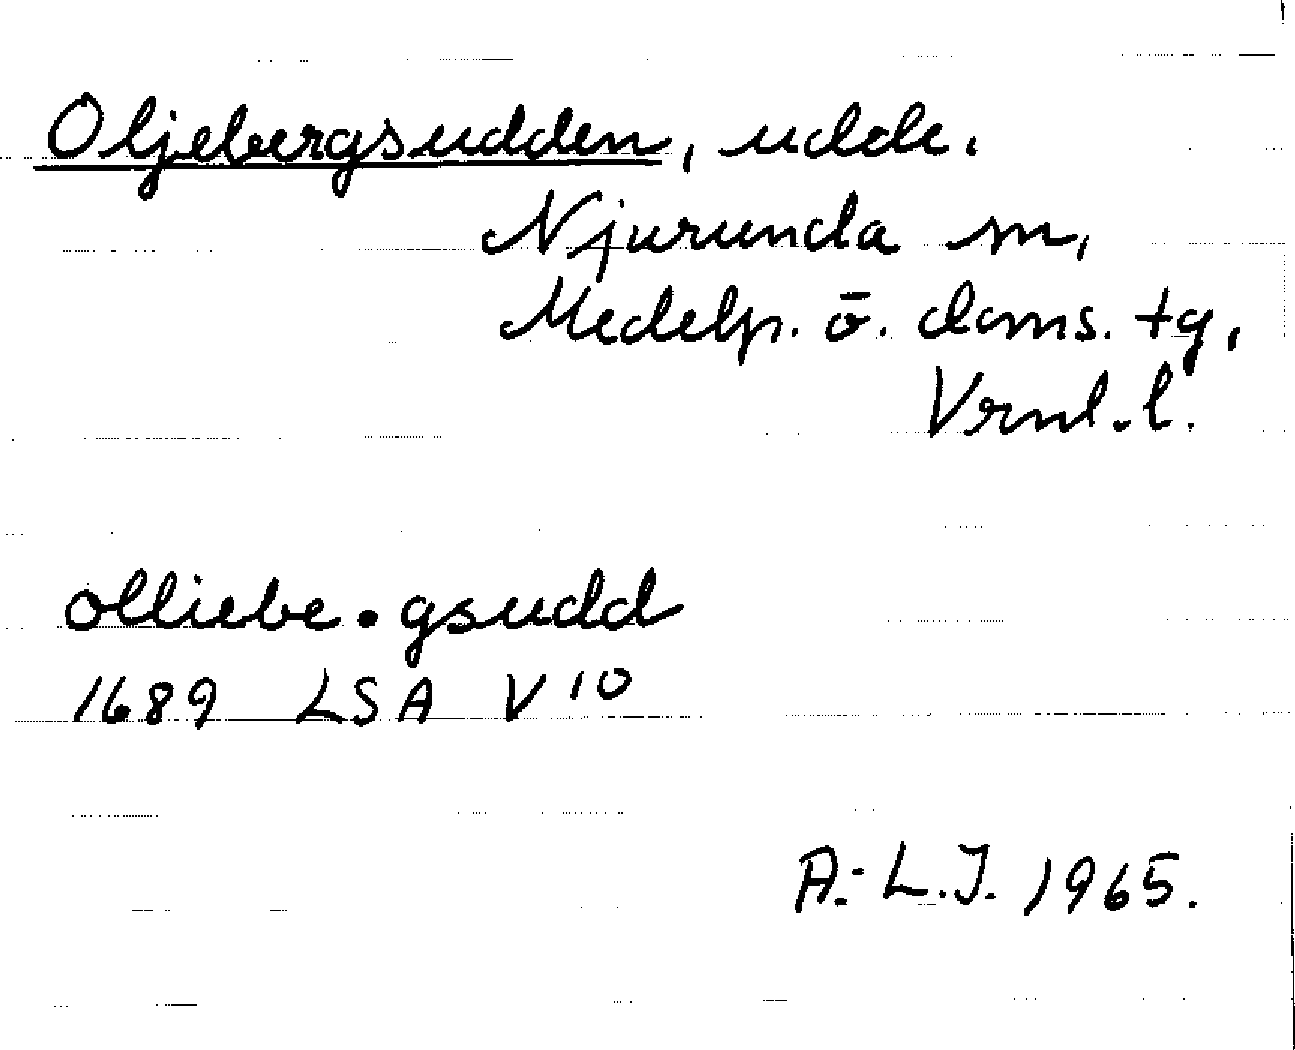 Oljebergsudden, udde.
Njurunda sn,
Medelp. ö. doms. tg,
Vrnl. l.
olliebe.gsudd
1689 LSA V 10
A.-L.J. 1965.